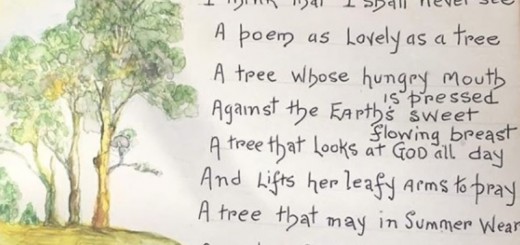 I think that I shall never see
A poem as Lovely as a tree
A tree whose hungry mouth
is pressed
Against the Earth's sweet
flowing breast
A tree that Looks at GOD all day
And Lifts her leafy Arms to pray
A tree that may in Summer Wear